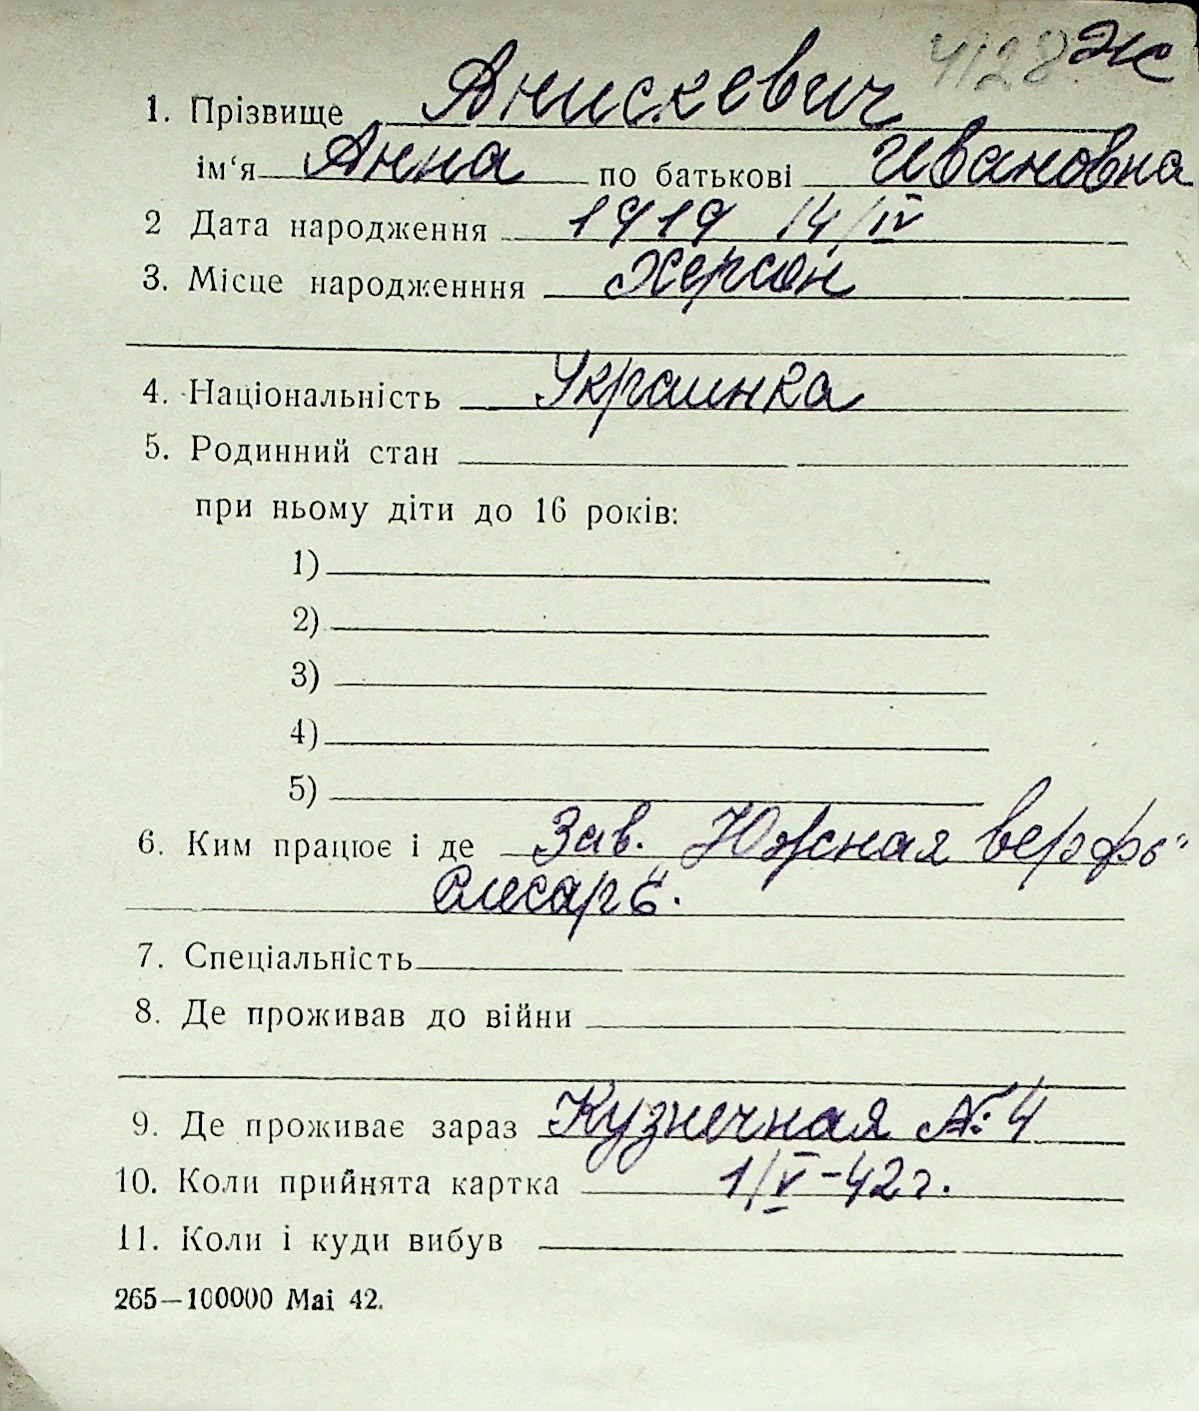 4128 Ж
1. Прізвище Анискевич
ім‘я Анна по батькові Ивановна
2 Дата народження 1919 14/IV
3. Місце народженння Херсон
4. Національність Украинка
5. Родинний стан
при ньому діти до 16 років:
1)
2)
3)
4)
5)
6. Ким працює і де Зав. Южная верфь"
слесарь.
7. Спеціальність
8. Де проживав до війни
9. Де проживає зараз Кузнечная №4
10. Коли прийнята картка 1/V-42г.
11. Коли і куди вибув
265—100000 Mai 42.